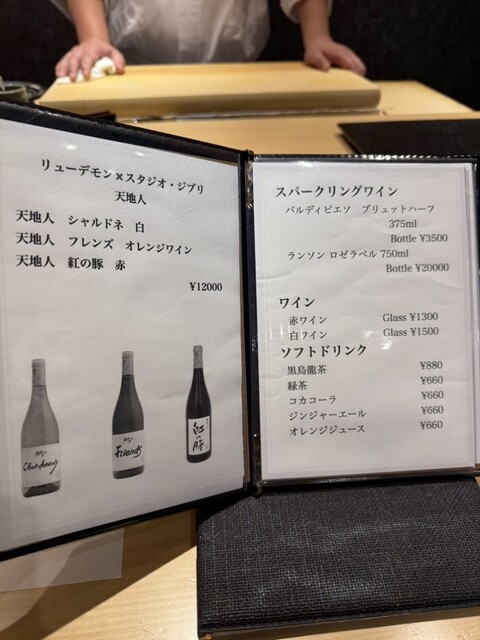 リューデモン×スタジオ・ジブリ
天地人
天地人 シャルドネ 白
天地人 フレンズ オレンジワイン
天地人 紅の豚 赤
¥12000
Chardonnay
Friends
紅の豚
スパークリングワイン
バルディビエソ ブリュットハーフ
375ml
Bottle ¥3500
ランソン ロゼラベル 750ml
Bottle ¥20000
ワイン
赤ワイン Glass ¥1300
白ワイン Glass ¥1500
ソフトドリンク
黒烏龍茶 ¥880
緑茶 ¥660
コカコーラ ¥660
ジンジャーエール ¥660
オレンジジュース ¥660